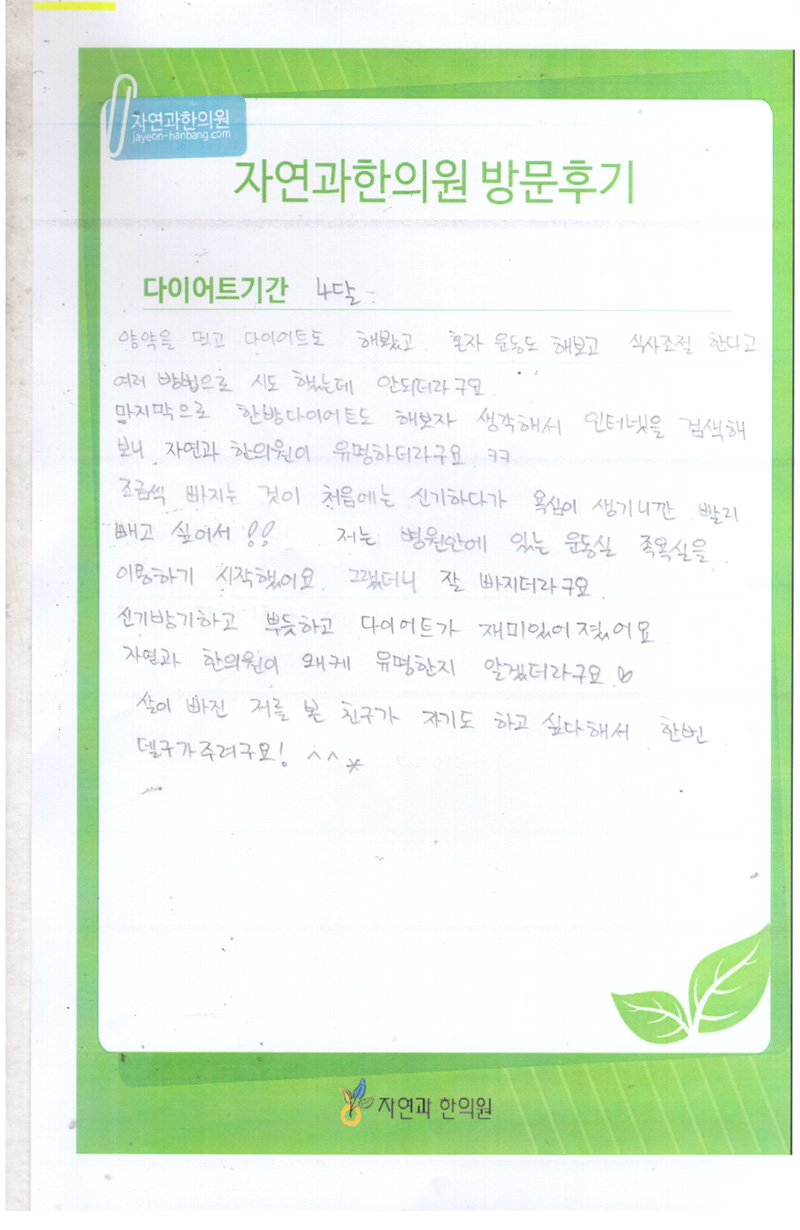 자연과한의원
jayeon-hanbang.com
자연과한의원 방문후기
다이어트기간 4달
양약을 먹고 다이어트도 해봤고 혼자 운동도 해보고 식사조절 한다고
여러 방법으로 시도 했는데 안되더라구요
마지막으로 한방다이어트도 해보자 생각해서 인터넷을 검색해
보니 자연과 한의원이 유명하더라구요 ㅋㅋ
조금씩 빠지는 것이 처음에는 신기하다가 욕심이 생기니깐 빨리
빼고 싶어서!! 저는 병원안에 있는 운동실 족욕실을
이용하기 시작했어요 그랬더니 잘 빠지더라구요
신기방기하고 뿌듯하고 다이어트가 재미있어졌어요
자연과 한의원이 왜케 유명한지 알겠더라구요♡
살이 빠진 저를 본 친구가 자기도 하고 싶다해서 한번
델구가주려구요! ^^*
자연과 한의원